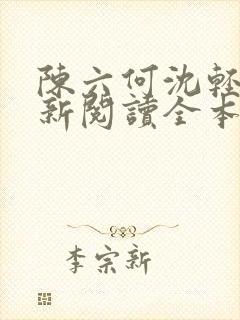 陳六何沈輕
新閱讀全本
李宗新